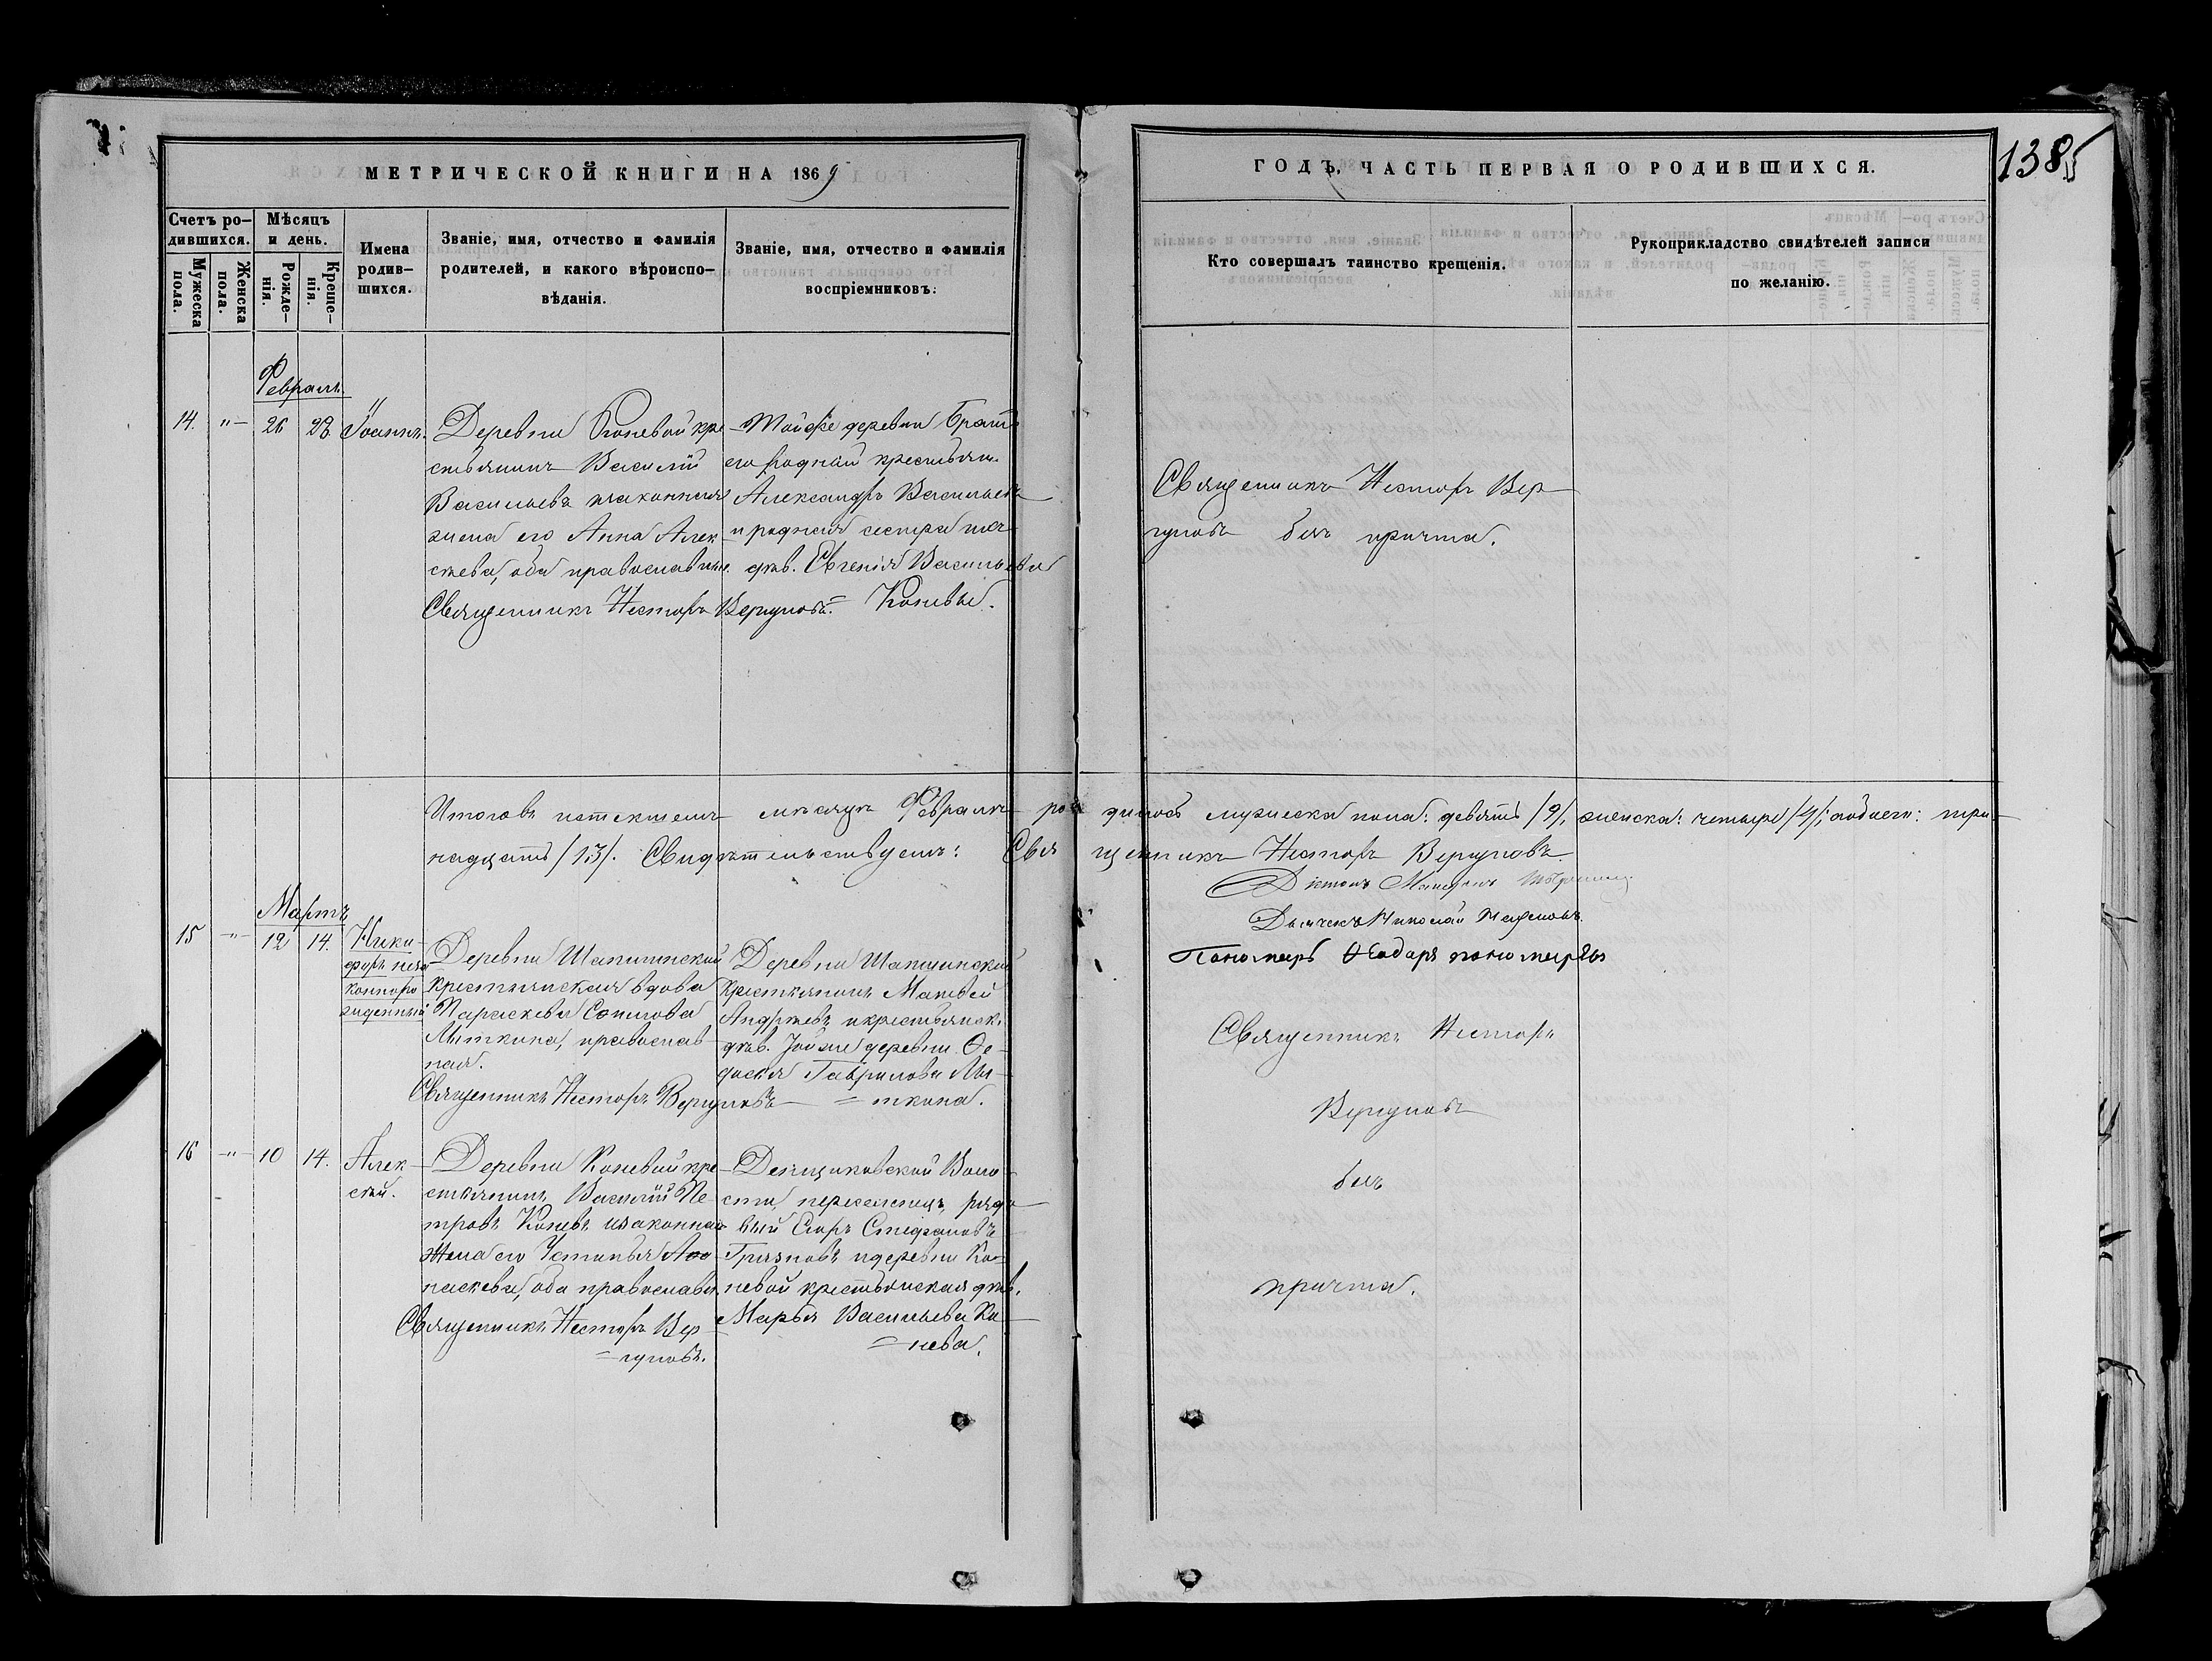 МЕТРИЧЕСКОЙ КНИГИ НА 1869
ГОДЪ, ЧАСТЬ ПЕРВАЯ О РОДИВШИХСЯ.
1385
Счетъ ро-
дившихся.
Мѣсяцъ
и день.
Мужеска
пола.
Женска
пола.
Рожде-
нія.
Креще-
нія.
Имена
родив-
шихся.
Званіе, имя, отчество и фамилія
родителей, и какого вѣроиспо-
вѣданія.
Званіе, имя, отчество и фамилія
воспріемниковъ.
Кто совершалъ таинство крещенія.
Рукоприкладство свидѣтелей записи
по желанію.
Февраль.
14. "– 26 28 Іоаннъ.
Деревни Коневой кре-
стьянинъ Василій
Васильевъ изаконная
жена его Анна Алек-
сѣева, оба православные.
Священникъ Несторъ Вергуновъ.
Тойже деревни братъ
его родный крестьян.
Александръ Васильевъ
и родная сестра
дѣв. Евгенія Васильева
Коневы.
Священникъ Несторъ Вер-
гуновъ безъ причта.
Итого въ истекшемъ мѣсяцѣ Февралѣ родилось мужеска пола: девять /9/, женска: четыре /4/; обоего: три-
надцать /13/. Свидѣтельствуемъ: Священникъ Несторъ Вергуновъ.
Діаконъ
Дьячекъ Николай
Пономарь Ѳеодоръ Пономаревъ
Мартъ
15 "– 12 14. Ники-
форъ неза
конноро
жденный
Деревни Шапшинской
крестьянская вдова
Параскева
Мяткина, православ-
ная.
Священникъ Несторъ Вергуновъ
Деревни Шапшинской
крестьянинъ Матвей
Андреевъ и крестьянск.
дѣв. Той же деревни Ѳе-
досія Гаврилова Мя-
=ткина.
Священникъ Несторъ
Вергуновъ
безъ
причта.
16 "– 10 14. Алек-
сѣй.
Деревни Коневой кре-
стьянинъ Василій Пе-
тровъ Коневъ изаконная
жена его Устинья
оба православн.
Священникъ Несторъ Вер-
=гуновъ.
Деньщиковской Воло-
сти, переселенецъ, рядо-
вый Егоръ Стефановъ
Грязновъ и деревни Ко-
невой крестьянская дѣв.
Марья Васильева Ко-
=нева.